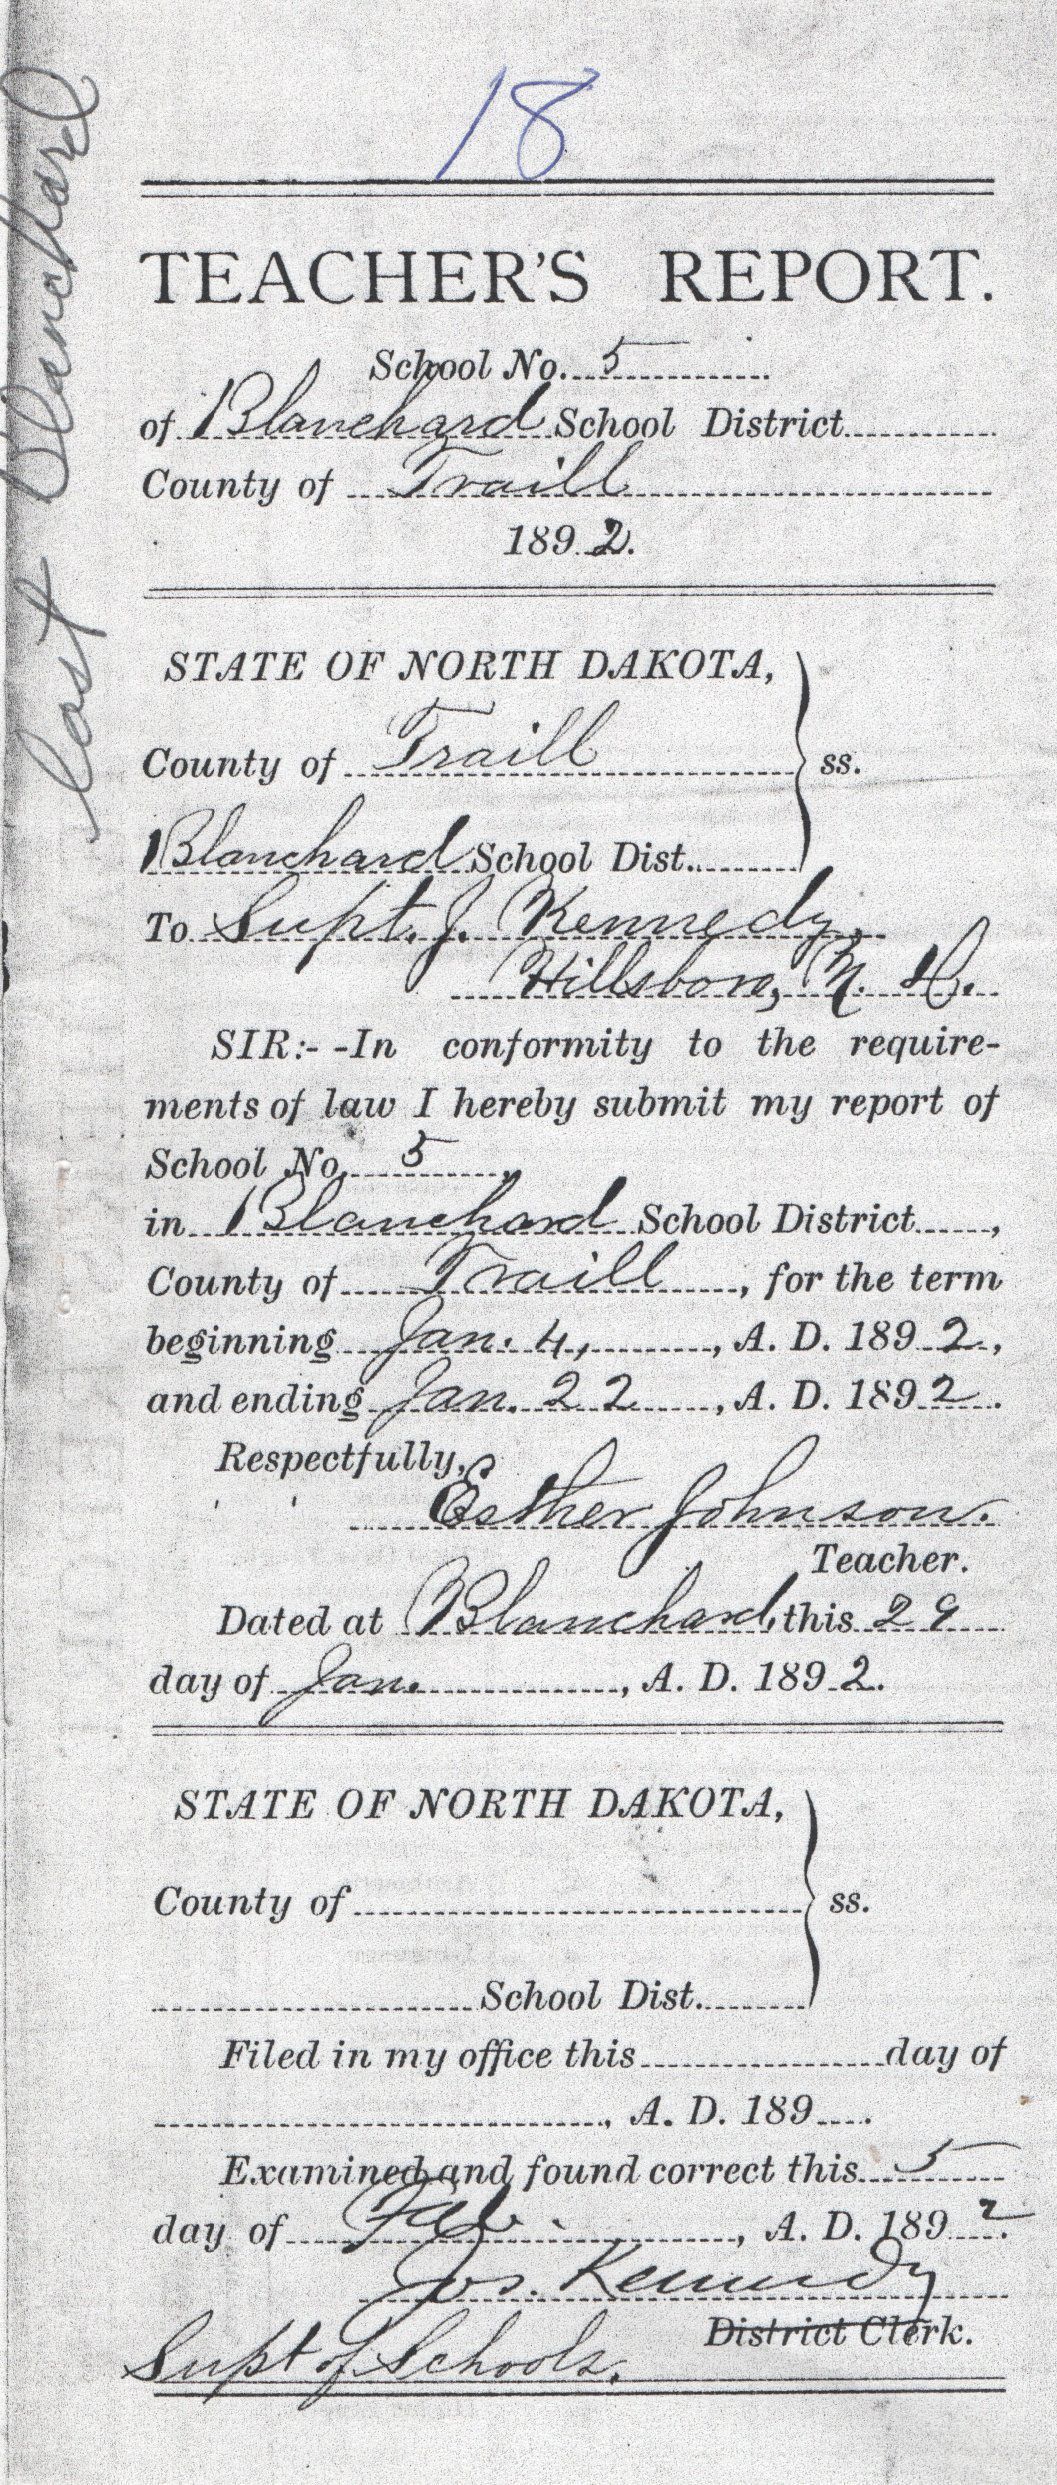 18
last Blanchard
TEACHER'S REPORT.
School No. 5
of Blanchard School District
County of Traill
1892.
STATE OF NORTH DAKOTA,
County of Traill ss.
Blanchard School Dist.
To Supt. J. Kennedy,
Hillsboro, N. D.
SIR:- -In conformity to the require-
ments of law I hereby submit my report of
School No. 5,
in Blanchard School District,
County of Traill, for the term
beginning Jan. 4, A. D. 1892,
and ending Jan. 22, A. D. 1892.
Respectfully,
Esther Johnson.
Teacher.
Dated at Blanchard, this 29
day of Jan., A. D. 1892.
STATE OF NORTH DAKOTA,
County of ss.
School Dist.
Filed in my office this day of
, A. D. 189 .
Examined and found correct this 5
day of Feb., A. D. 1892.
Jos. Kennedy
District Clerk.
Supt of Schools.